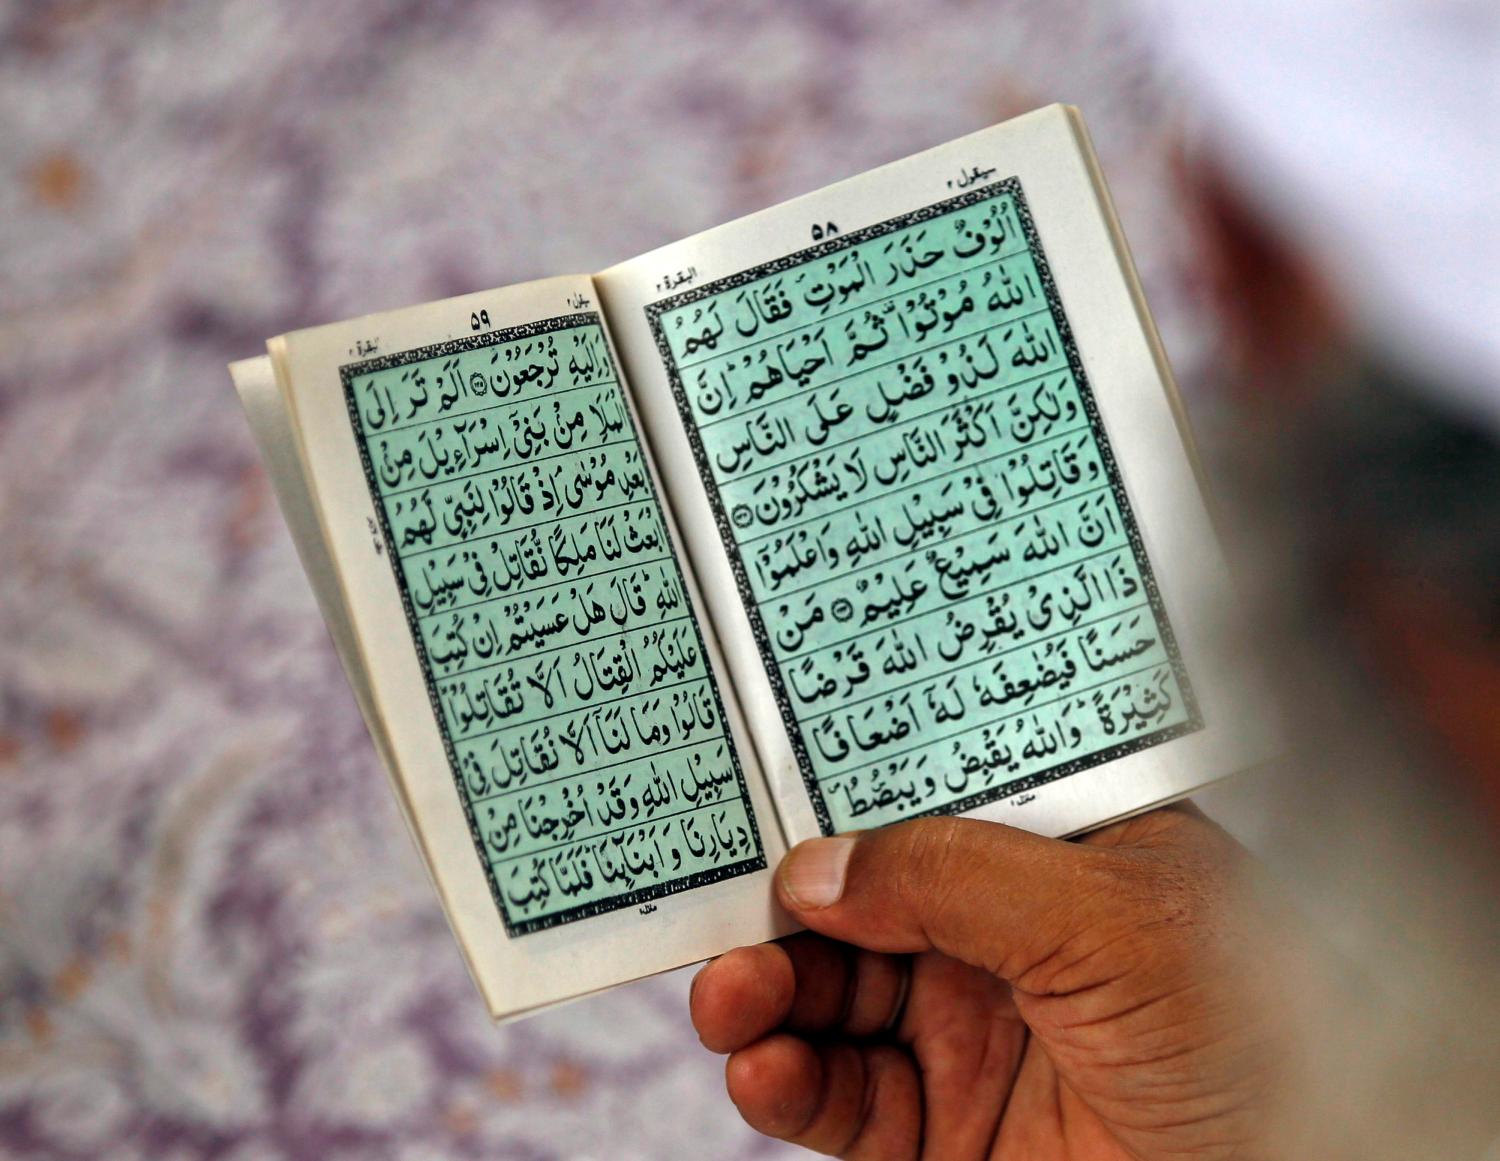 سيقول ٢
۵۸
البقرة ٢
اُلُوْفٌ حَذَرَ الْمَوْتِ فَقَالَ لَهُمُ
اللّٰهُ مُوْتُوْا ثُمَّ اَحْيَاهُمْ ؕ اِنَّ
اللّٰهَ لَذُوْ فَضْلٍ عَلَى النَّاسِ
وَلٰكِنَّ اَكْثَرَ النَّاسِ لَا يَشْكُرُوْنَ ﴿٢٤٣﴾
وَقَاتِلُوْا فِیْ سَبِيْلِ اللّٰهِ وَاعْلَمُوْۤا
اَنَّ اللّٰهَ سَمِيْعٌ عَلِيْمٌ ﴿٢٤٤﴾ مَنْ
ذَا الَّذِیْ يُقْرِضُ اللّٰهَ قَرْضًا
حَسَنًا فَيُضٰعِفَهٗ لَهٗۤ اَضْعَافًا
كَثِيْرَةً ؕ وَاللّٰهُ يَقْبِضُ وَيَبْصُۜطُ ۪
منزل ١
سيقول ٢
۵۹
البقرة ٢
وَاِلَيْهِ تُرْجَعُوْنَ ﴿٢٤٥﴾ اَلَمْ تَرَ اِلَى
الْمَلَاِ مِنْۢ بَنِیْۤ اِسْرَآءِيْلَ مِنْۢ
بَعْدِ مُوْسٰى ۘ اِذْ قَالُوْا لِنَبِیٍّ لَّهُمُ
ابْعَثْ لَنَا مَلِكًا نُّقَاتِلْ فِیْ سَبِيْلِ
اللّٰهِ ؕ قَالَ هَلْ عَسَيْتُمْ اِنْ كُتِبَ
عَلَيْكُمُ الْقِتَالُ اَلَّا تُقَاتِلُوْا ؕ
قَالُوْا وَمَا لَنَاۤ اَلَّا نُقَاتِلَ فِیْ
سَبِيْلِ اللّٰهِ وَقَدْ اُخْرِجْنَا مِنْ
دِيَارِنَا وَ اَبْنَآئِنَا ؕ فَلَمَّا كُتِبَ
منزل ١